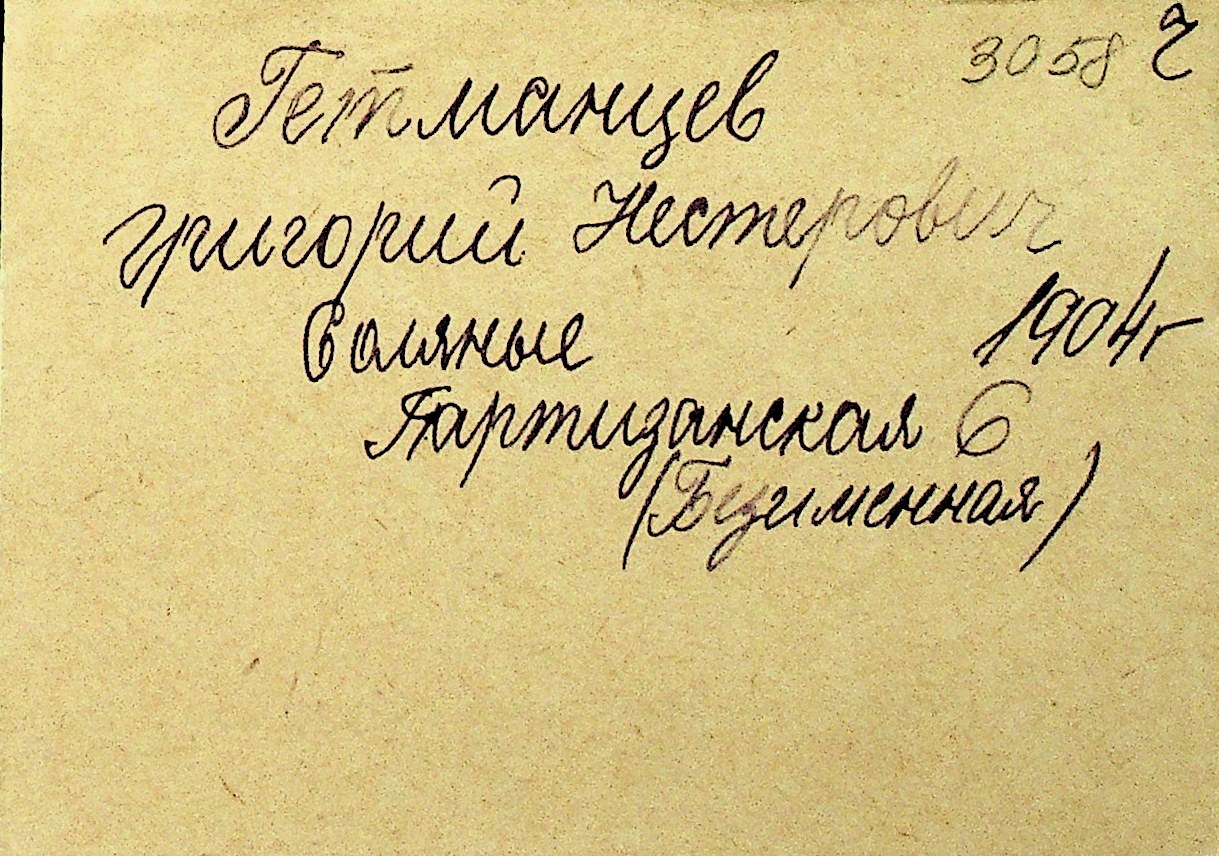 3058 г
Гетманцев
Григорий Нестерович
Соляные 1904г
Партизанская 6
(Безименная)